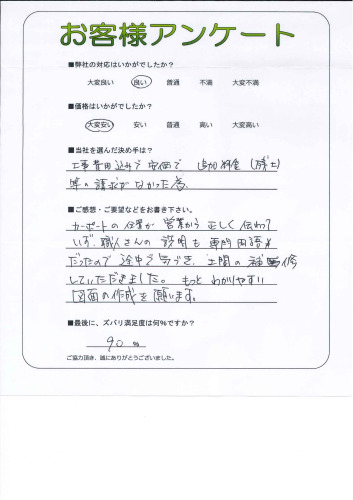 お客様アンケート
■弊社の対応はいかがでしたか?
大変良い 良い 普通 不満 大変不満
■価格はいかがでしたか?
大変安い 安い 普通 高い 大変高い
■当社を選んだ決め手は?
工事費用込みで安価で 追加料金(残土)
等の請求がなかった為。
■ご感想・ご要望などをお書き下さい。
カーポートの位置が営業から正しく伝わって
いず、職人さんの説明も専門用語
だったので 途中で気づき、土間の補修
していただきました。もっとわかりやすい
図面の作成を願います。
■最後に、ズバリ満足度は何%ですか?
90 %
ご協力頂き、誠にありがとうございました。